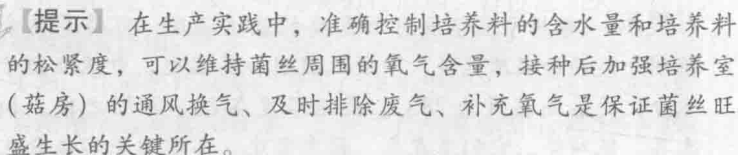 【提示】 在生产实践中，准确控制培养料的含水量和培养料
的松紧度，可以维持菌丝周围的氧气含量，接种后加强培养室
（菇房）的通风换气、及时排除废气、补充氧气是保证菌丝旺
盛生长的关键所在。